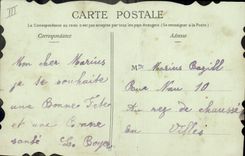 III
CARTE POSTALE
La Correspondance au recto n'est pas acceptée par tous les pays étrangers (Se renseigner à la Poste)
Correspondance
Adresse
Mon cher Marius
je te souhaite
une Bonne Fête
et une Bonne
santé
Mr Marius
Rue Nau 10
Au rez de chaussée
en Villes